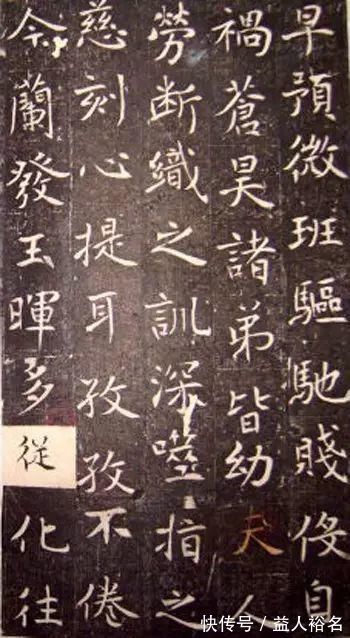 早預微班驅馳賤役自
禍蒼昊諸弟皆幼夫人
勞断織之訓深噬指之
慈刻心提耳孜孜不倦
令蘭發玉暉多從化往
快传号/益人裕名